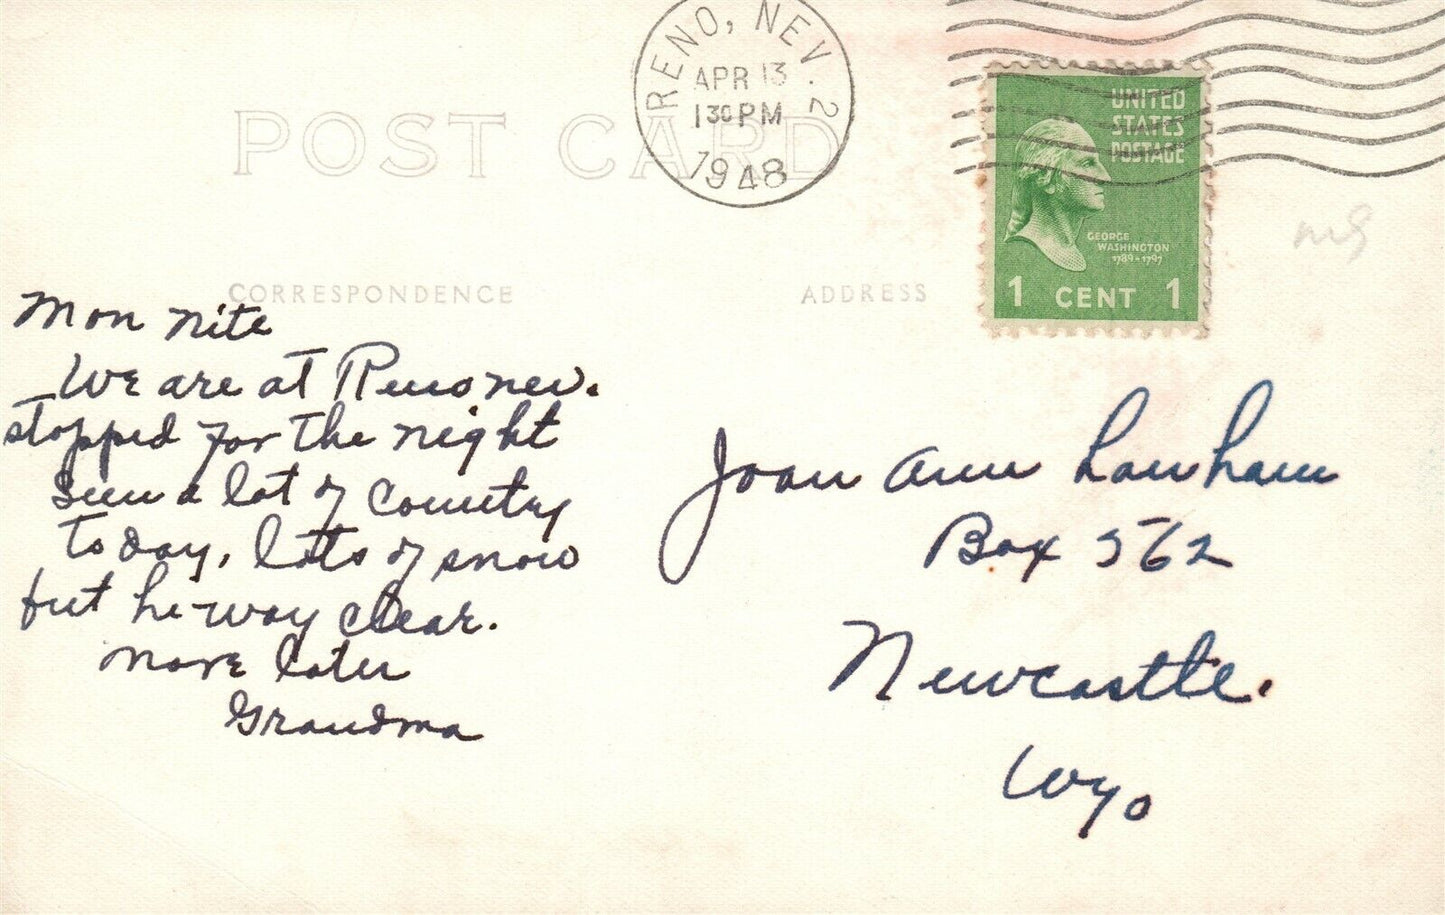 RENO, NEV. 2
APR 13
1 30 PM
1948
UNITED
STATES
POSTAGE
GEORGE
WASHINGTON
1789-1797
1 CENT 1
POST CARD
CORRESPONDENCE
ADDRESS
Mon nite
We are at Reno nev.
stopped for the night
Seen a lot of country
to day, lots of snow
but hi-way clear.
more later
Grandma
Joan Ann Lanham
Box 562
Newcastle.
Wyo